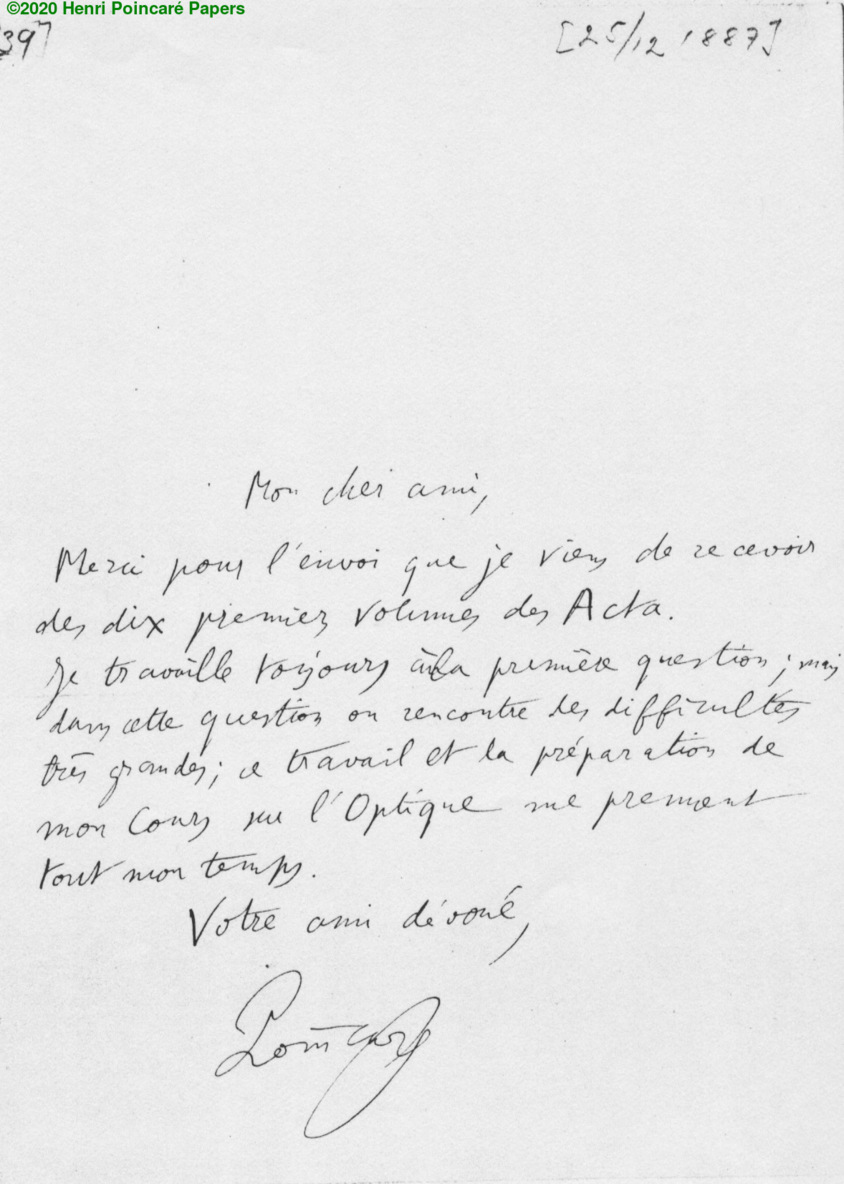 ©2020 Henri Poincaré Papers
39]
[25/12 1887]
Mon cher ami,
Merci pour l'envoi que je viens de recevoir
des dix premiers volumes des Acta.
Je travaille toujours à la première question ; mais
dans cette question on rencontre des difficultés
très grandes ; ce travail et la préparation de
mon Cours sur l'Optique me prennent
tout mon temps.
Votre ami dévoué,
Poincaré